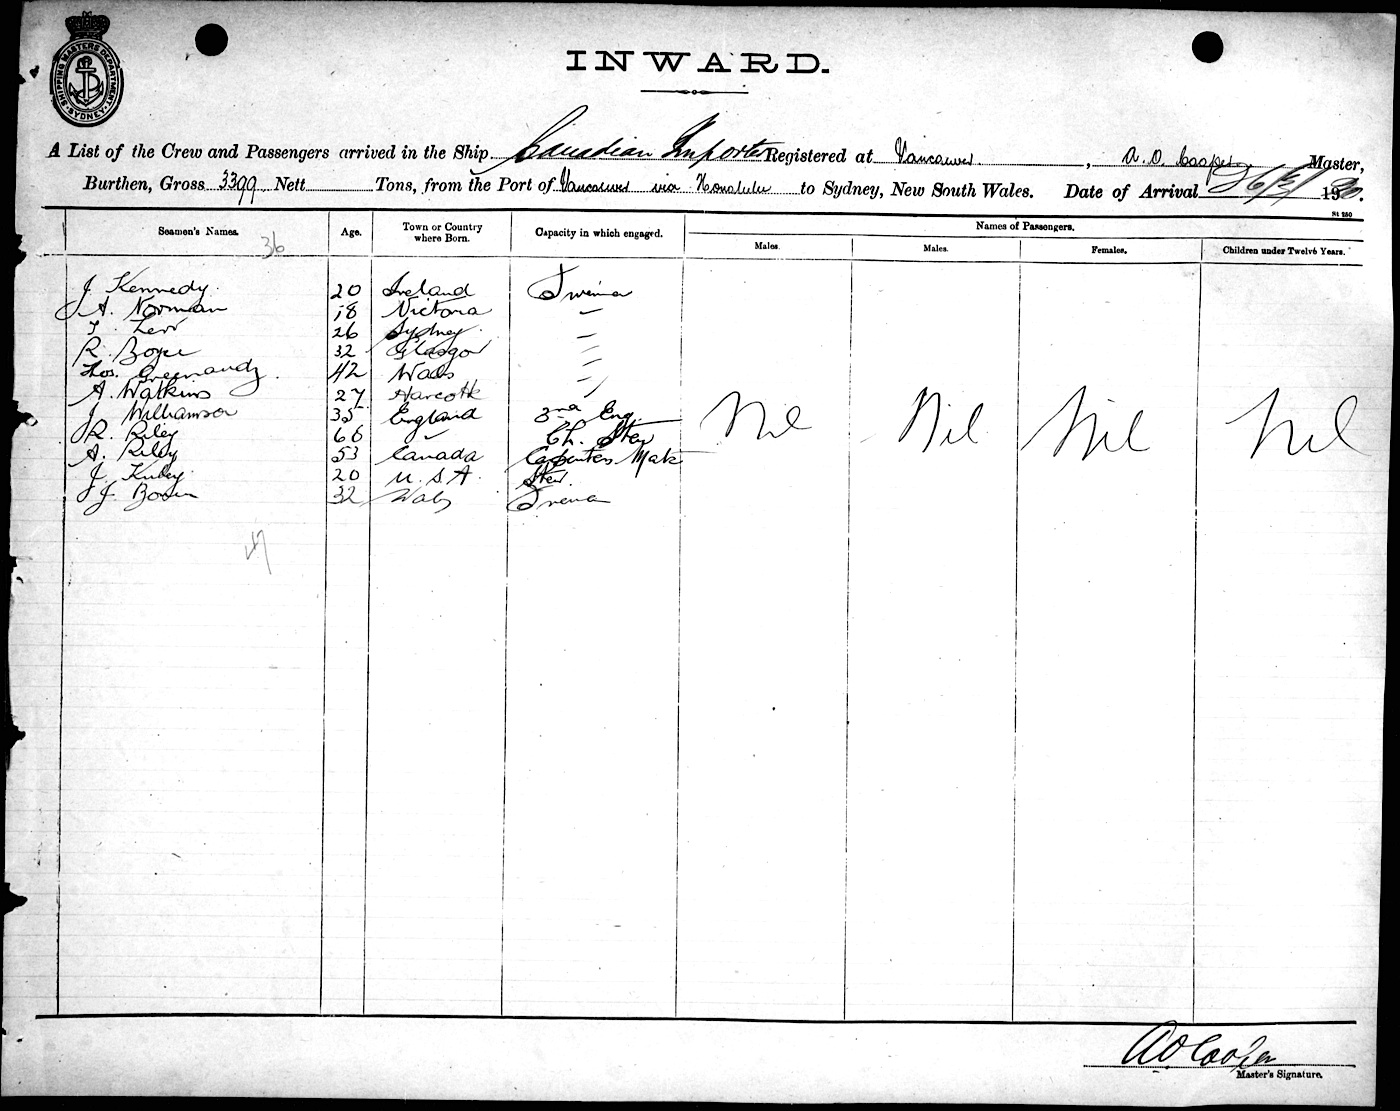 SHIPPING MASTERS DEPARTMENT SYDNEY
INWARD.
A List of the Crew and Passengers arrived in the Ship Canadian Importer Registered at Vancouver, A. O. Cooper Master,
Burthen, Gross 3399 Nett Tons, from the Port of Vancouver via Honolulu to Sydney, New South Wales. Date of Arrival 1920.
St 250
Seamen's Names. Age. Town or Country where Born. Capacity in which engaged. Names of Passengers.
Males. Males. Females. Children under Twelve Years.
36
J. Kennedy 20 Ireland
A. Norman 18 Victoria
26 Sydney
R. 32 Glasgow
42 Wales
A. Watkins 27
J. Williamson 35 England 3rd Eng Nil Nil Nil Nil
R. Riley 66 " Ch. Stew
A. Riley 53 Canada Carpenters Mate
J. 20 U.S.A. Stew
J. 32 Wales
A O Cooper
Master's Signature.